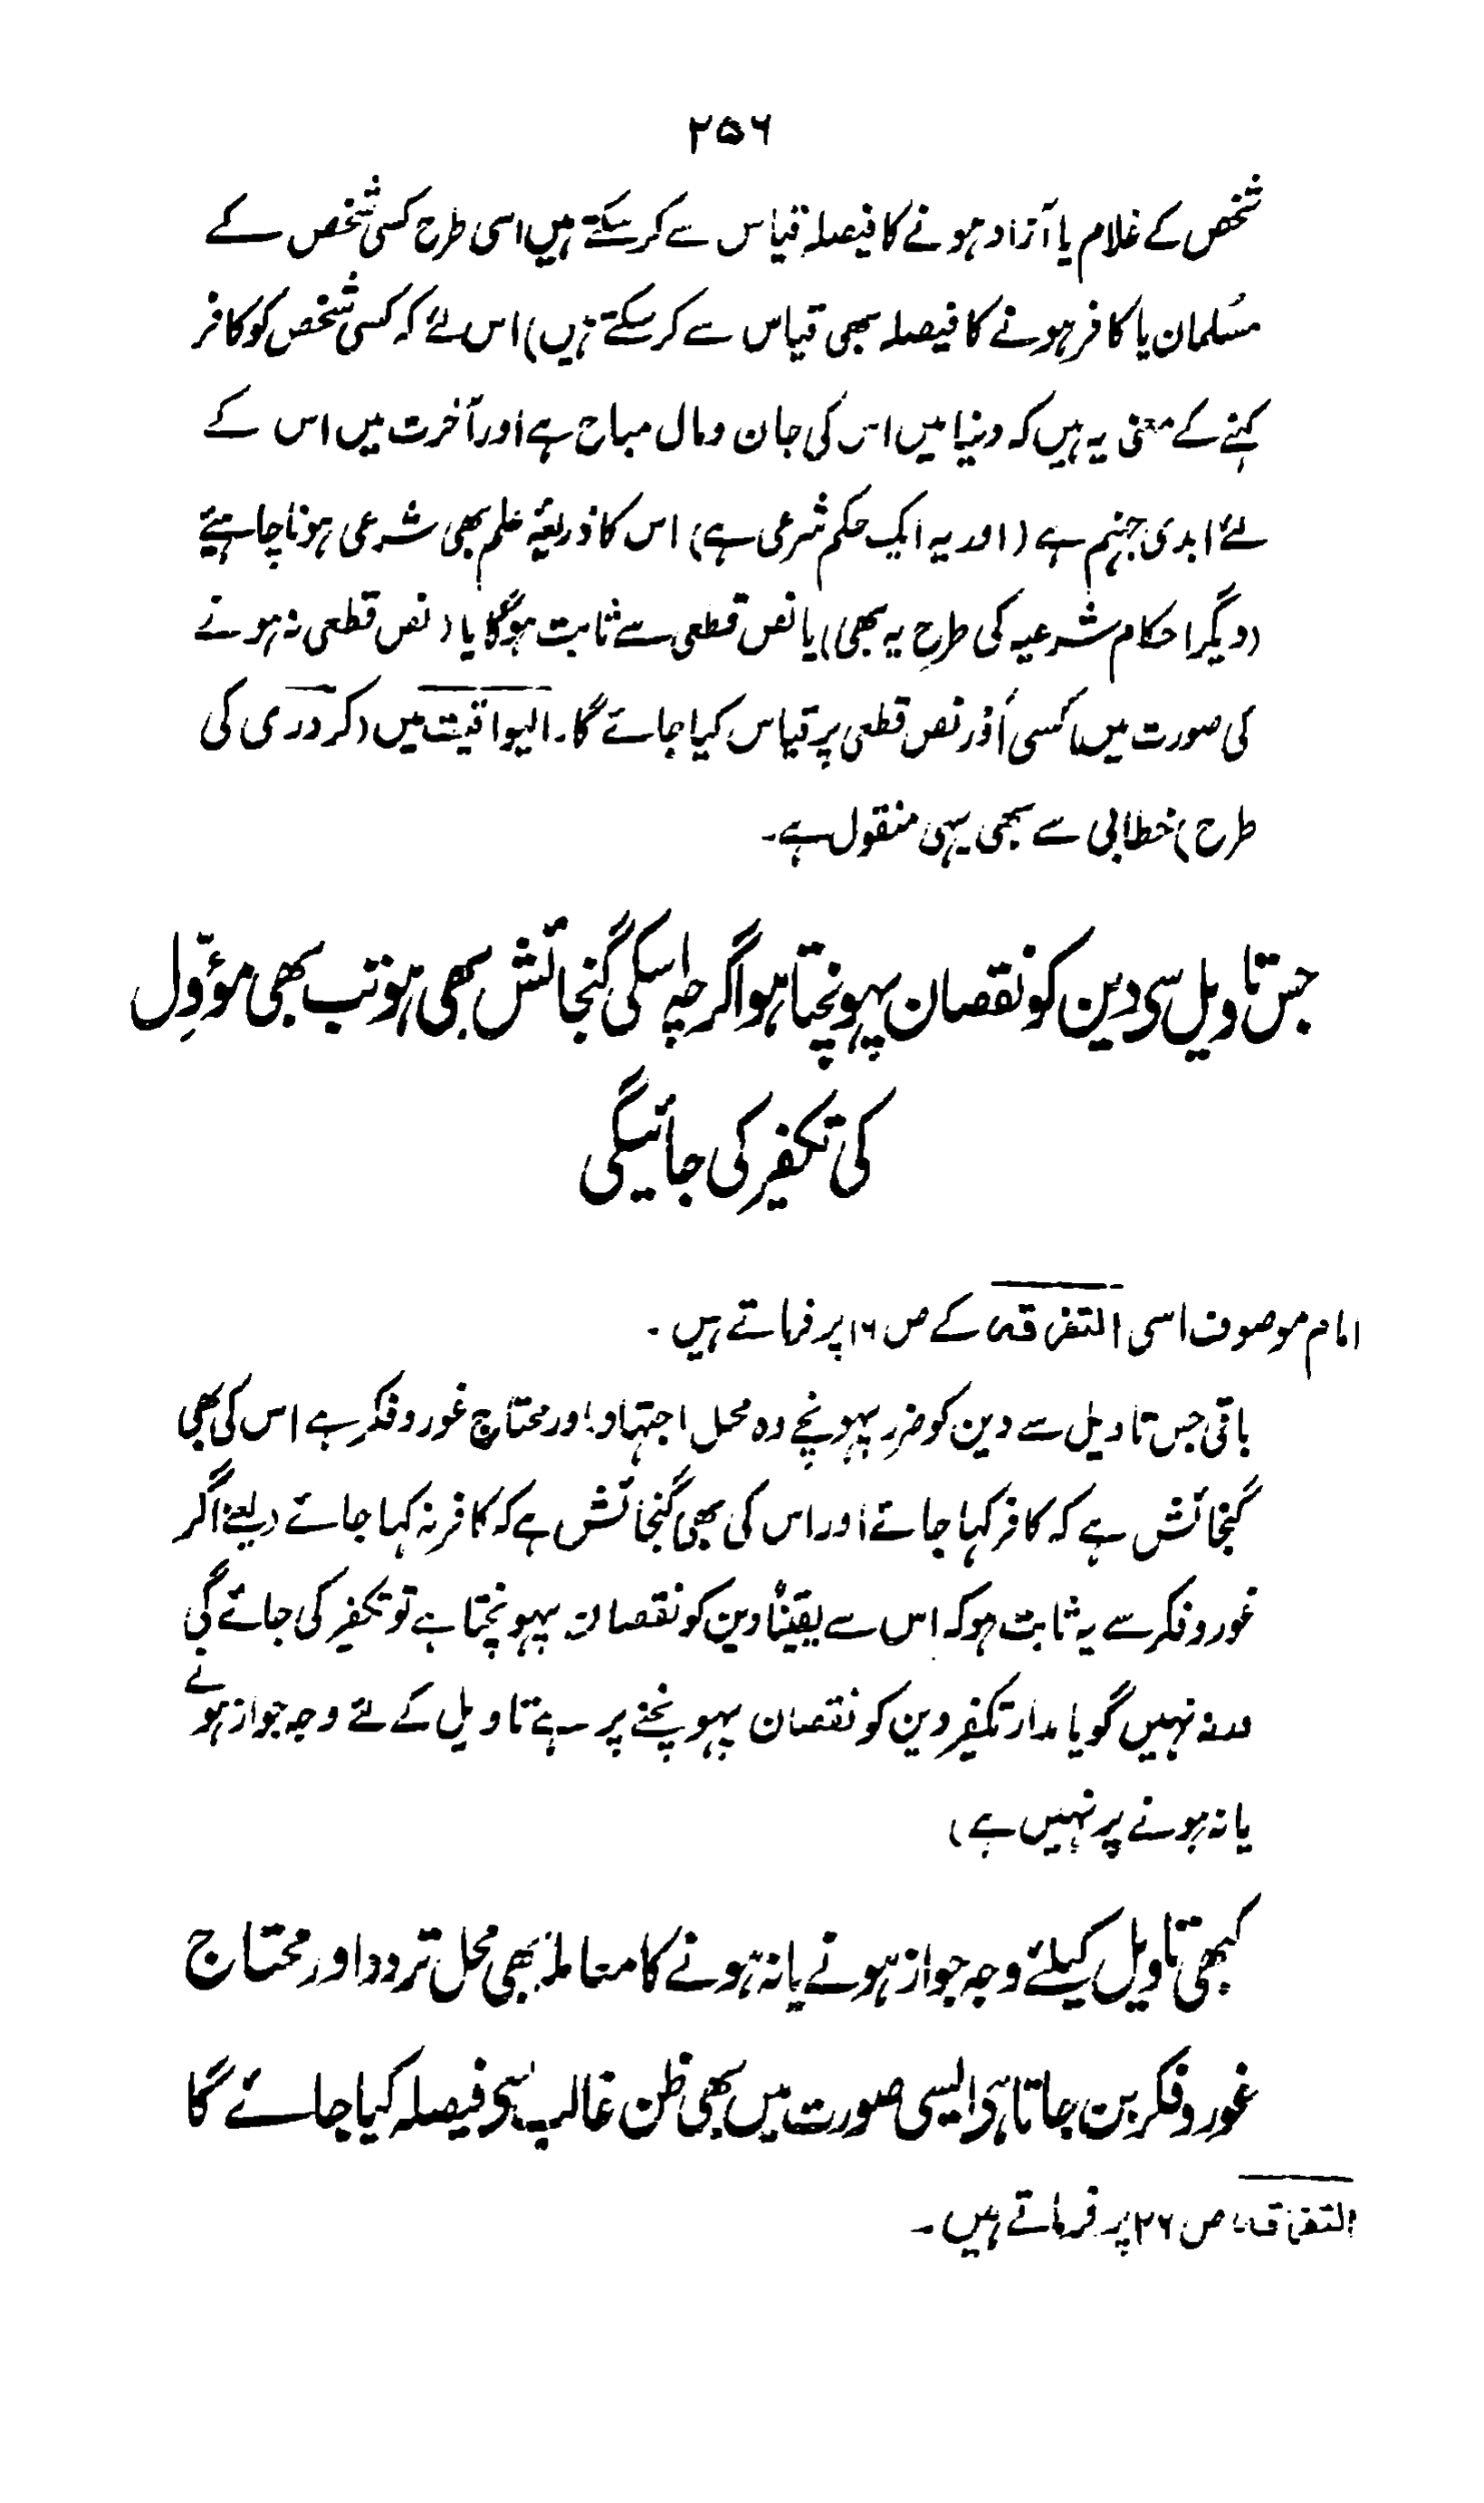 ۲۵۶
شخص کے غلام یا آزاد ہونے کا فیصلہ قیاس سے کر سکتے ہیں اسی طرح کسی شخص کے
مسلمان یا کافر ہونے کا فیصلہ بھی قیاس سے کر سکتے ہیں) اس لئے کہ کسی شخص کو کافر
کہنے کے معنی یہ ہیں کہ دنیا میں اس کی جان و مال مباح ہے اور آخرت میں اس کے
لئے ابدی جہنم ہے (اور یہ ایک حکم شرعی ہے) اس کا ذریعۂ علم بھی شرعی ہونا چاہیئے
(دیگر احکام شرعیہ کی طرح یہ بھی) یا نص قطعی سے ثابت ہوگا یا (نص قطعی نہ ہونے
کی صورت میں) کسی اور نص قطعی پر قیاس کیا جائے گا۔ الیواقیت میں (کردری کی
طرح) خطابی سے بھی یہی منقول ہے۔
جس تاویل سی دین کو نقصان پہونچتا ہو اگرچہ اسکی گنجائش بھی ہو تب بھی مؤوِّل
کی تکفیر کی جائیگی
امام موصوف اسی التفرقہ کے ص ۱۶ پر فرماتے ہیں ۔
باقی جس تاویل سے دین کو ضرر پہونچے وہ محل اجتہاد اور محتاج غور و فکر ہے اس کی بھی
گنجائش ہے کہ کافر کہا جائے اور اس کی بھی گنجائش ہے کہ کافر نہ کہا جائے (یعنے اگر
غور و فکر سے یہ ثابت ہو کہ اس سے یقیناً دین کو نقصان پہونچتا ہے تو تکفیر کی جائے گی
ورنہ نہیں گویا مدار تکفیر دین کو نقصان پہونچنے پر ہے تاویل کے لئے وجہ جواز ہونے
یا نہ ہونے پر نہیں ہے)
کبھی تاویل کیلئے وجہ جواز ہونے یا نہ ہونے کا معاملہ بھی محل تردد اور محتاج
غور و فکر بن جاتا ہی ایسی صورت میں بھی ظن غالب سی فیصلہ کیا جائے گا
التفرقہ ص ۲۶ پر فرماتے ہیں ۔